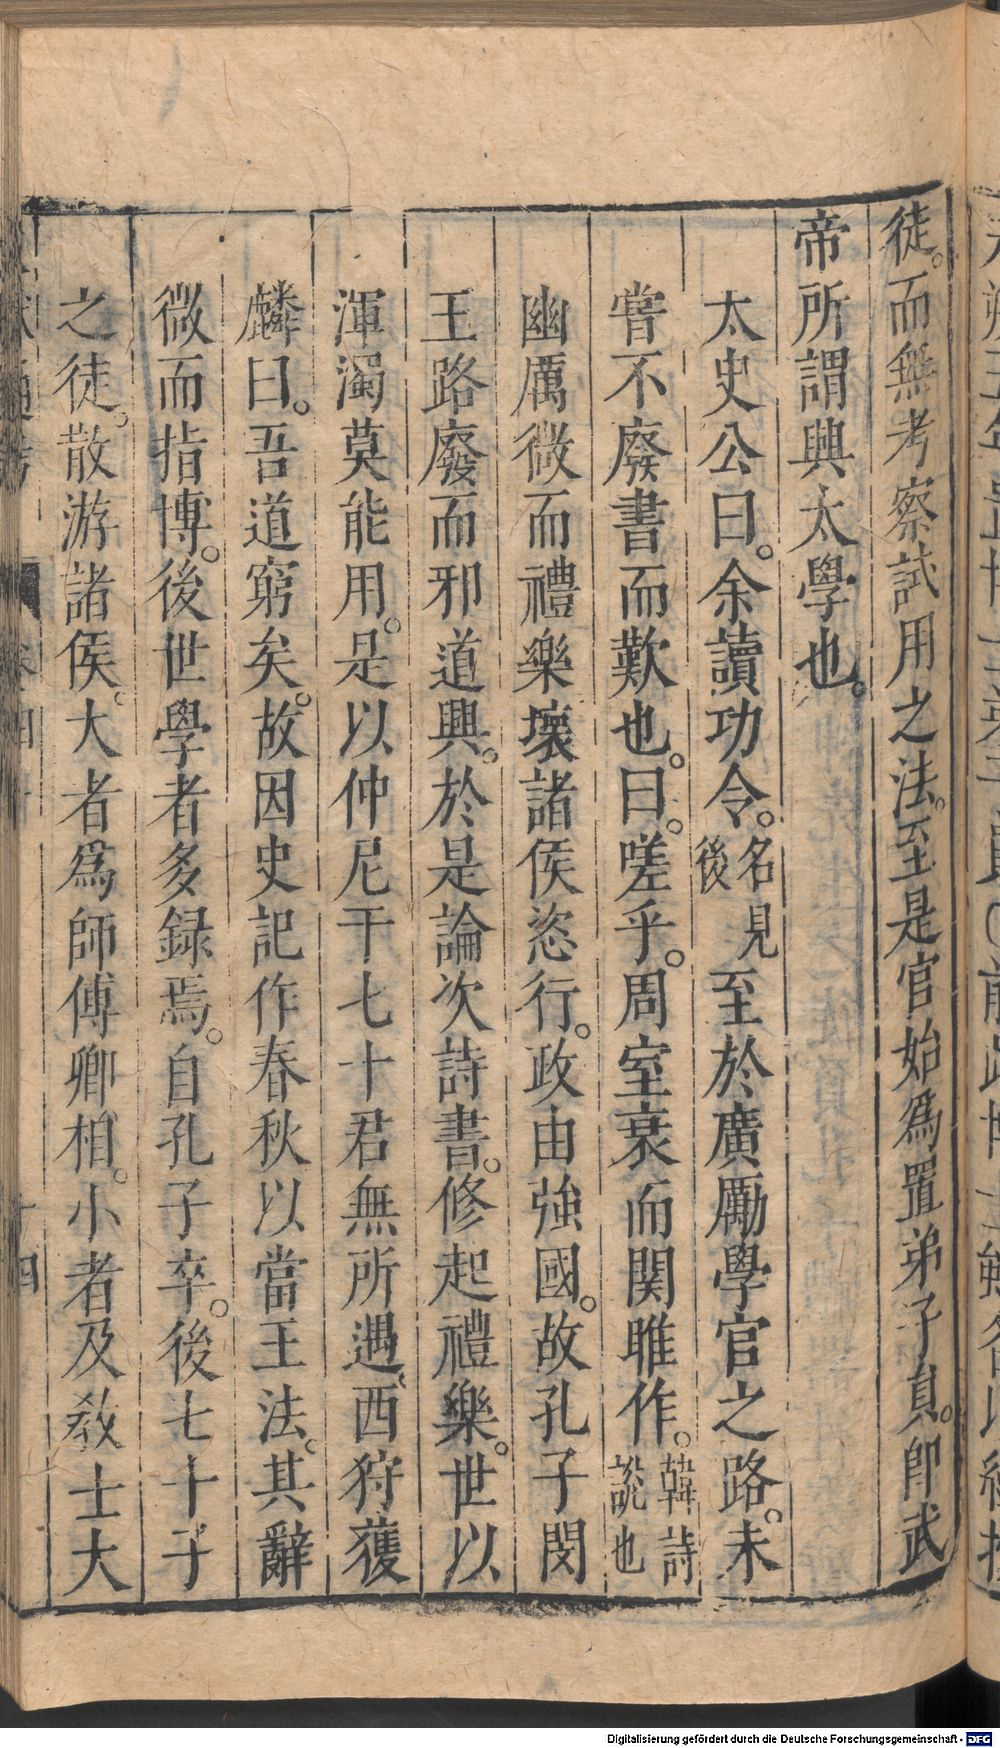 徒。而無考察試用之法。至是官始爲置弟子員。卽武
帝所謂興太學也。
太史公曰。余讀功令。名見後至於廣勵學官之路。未
嘗不廢書而歎也。曰。嗟乎。周室衰而関雎作。韓詩說也
幽厲微而禮樂壞諸侯恣行。政由強國。故孔子閔
王路廢而邪道興。於是論次詩書。修起禮樂。世以
渾濁莫能用。是以仲尼干七十君無所遇。西狩獲
麟曰。吾道窮矣。故因史記作春秋以當王法。其辭
微而指博。後世學者多録焉。自孔子卒。後七十子
之徒。散游諸侯。大者爲師傅卿相。小者及教士大
Digitalisierung gefördert durch die Deutsche Forschungsgemeinschaft - DFG